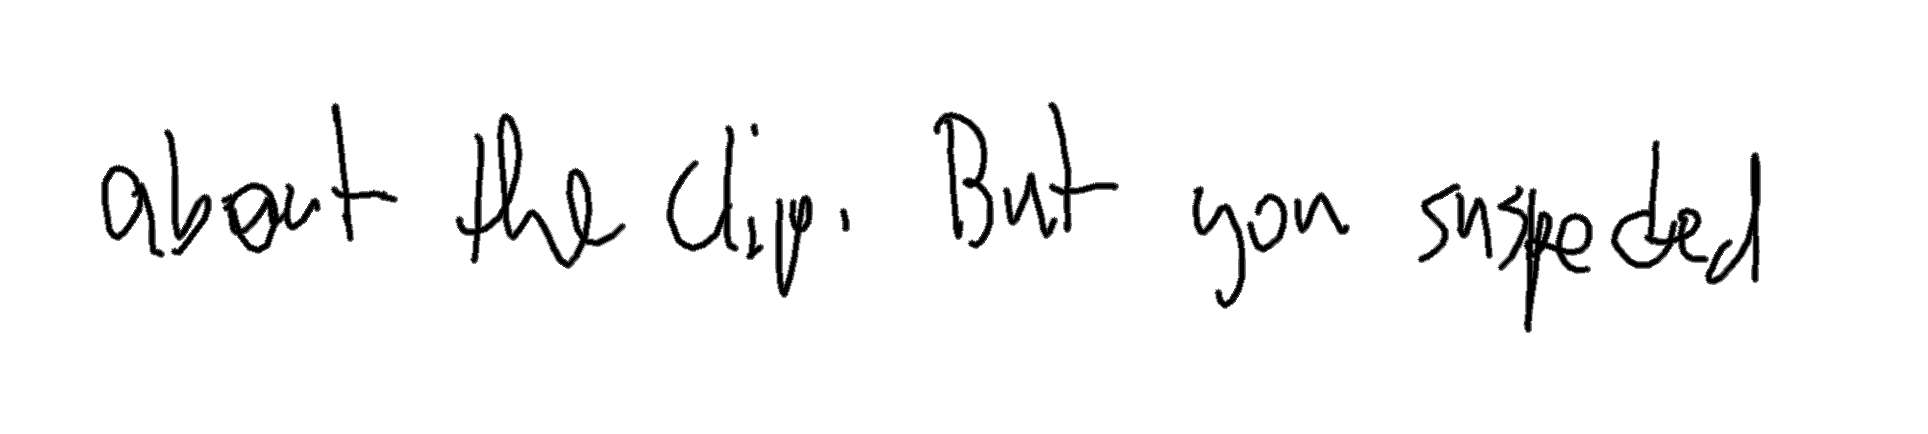 about the clip. But you suspected